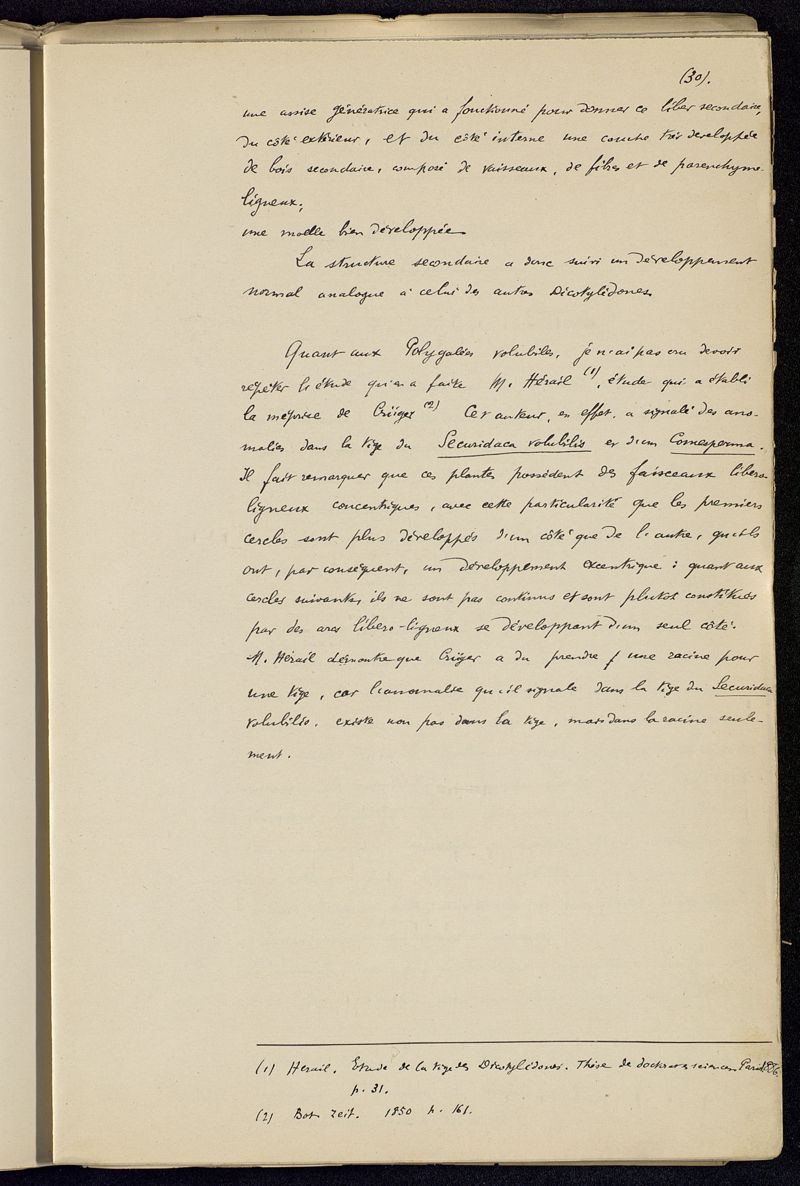 (30).
une assise génératrice qui a fonctionné pour donner ce liber secondaire,
du côté extérieur, et du côté interne une couche très développée
de bois secondaire, composé de vaisseaux, de fibres et de parenchyme
ligneux;
une moelle bien développée.
La structure secondaire a donc suivi un développement
normal analogue à celui des autres Dicotylédones.
Quant aux Polygalées volubiles, je n'ai pas cru devoir
répéter l'étude qu'en a faite M. Hérail (1), étude qui a établi
la méprise de Crüger (2) Cet auteur, en effet, a signalé des ano-
malies dans la tige du Securidaca volubilis et d'un Comesperma.
Il fait remarquer que ces plantes possèdent des faisceaux libero-
ligneux concentriques, avec cette particularité que les premiers
cercles sont plus développés d'un côté que de l'autre, qu'ils
ont, par conséquent, un développement excentrique : quant aux
cercles suivants, ils ne sont pas continus et sont plutôt constitués
par des arcs libero-ligneux se développant d'un seul côté.
M. Hérail démontre que Crüger a du prendre une racine pour
une tige, car l'anomalie qu'il signale dans la tige du Securidaca
volubilis. existe non pas dans la tige, mais dans la racine seule-
ment.
(1) Hérail. Etude de la tige des Dicotylédones. Thèse de doctorat sciences Paris 1886.
p. 31.
(2) Bot. Zeit. 1850 p. 161.